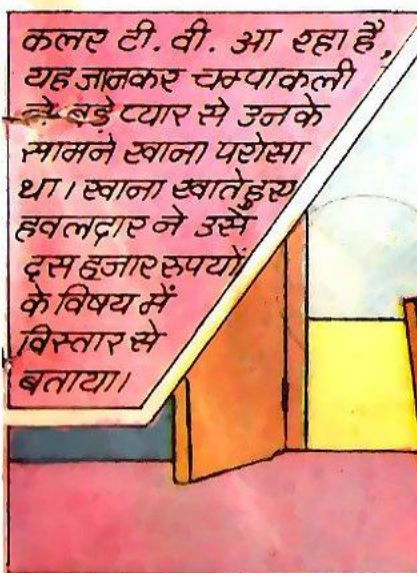 कलर टी. वी. आ रहा है,
यह जानकर चम्पाकली
ने बड़े प्यार से उनके
सामने खाना परोसा
था। खाना खाते हुए
हवलदार ने उसे
दस हजार रुपयों
के विषय में
विस्तार से
बताया।